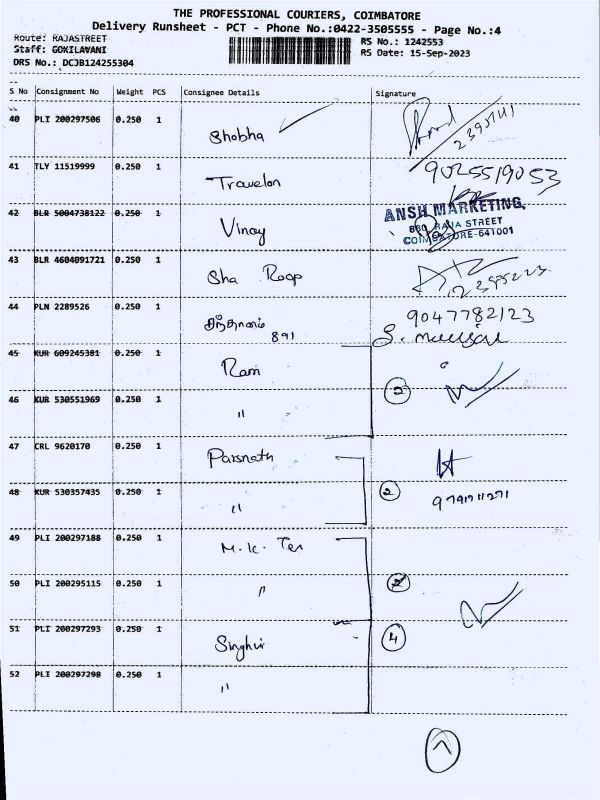 THE PROFESSIONAL COURIERS, COIMBATORE
Delivery Runsheet - PCT - Phone No.:0422-3505555 - Page No.:4
Route: RAJASTREET
RS No.: 1242553
Staff: GOKILAVANI
RS Date: 15-Sep-2023
DRS No.: DCJB124255304
S No Consignment No Weight PCS Consignee Details Signature
40 PLI 200297506 0.250 1 Shobha
41 TLY 11519999 0.250 1 Travelon 9025519053
42 BLR 5004738122 0.250 1 Vinay
ANSH MARKETING,
880, RAJA STREET
COIMBATORE-641001
43 BLR 4604091721 0.250 1 Sha Roop
44 PLN 2289526 0.250 1 சந்தானம் 9047782123
891
45 KUR 609245381 0.250 1 Ram
46 KUR 530551969 0.250 1 " 2
47 CRL 9620170 0.250 1 Parsnath
48 KUR 530357435 0.250 1 " 2
49 PLI 200297188 0.250 1 M.K. Tex
50 PLI 200295115 0.250 1 "
51 PLI 200297293 0.250 1 Singhvi 4
52 PLI 200297298 0.250 1 "